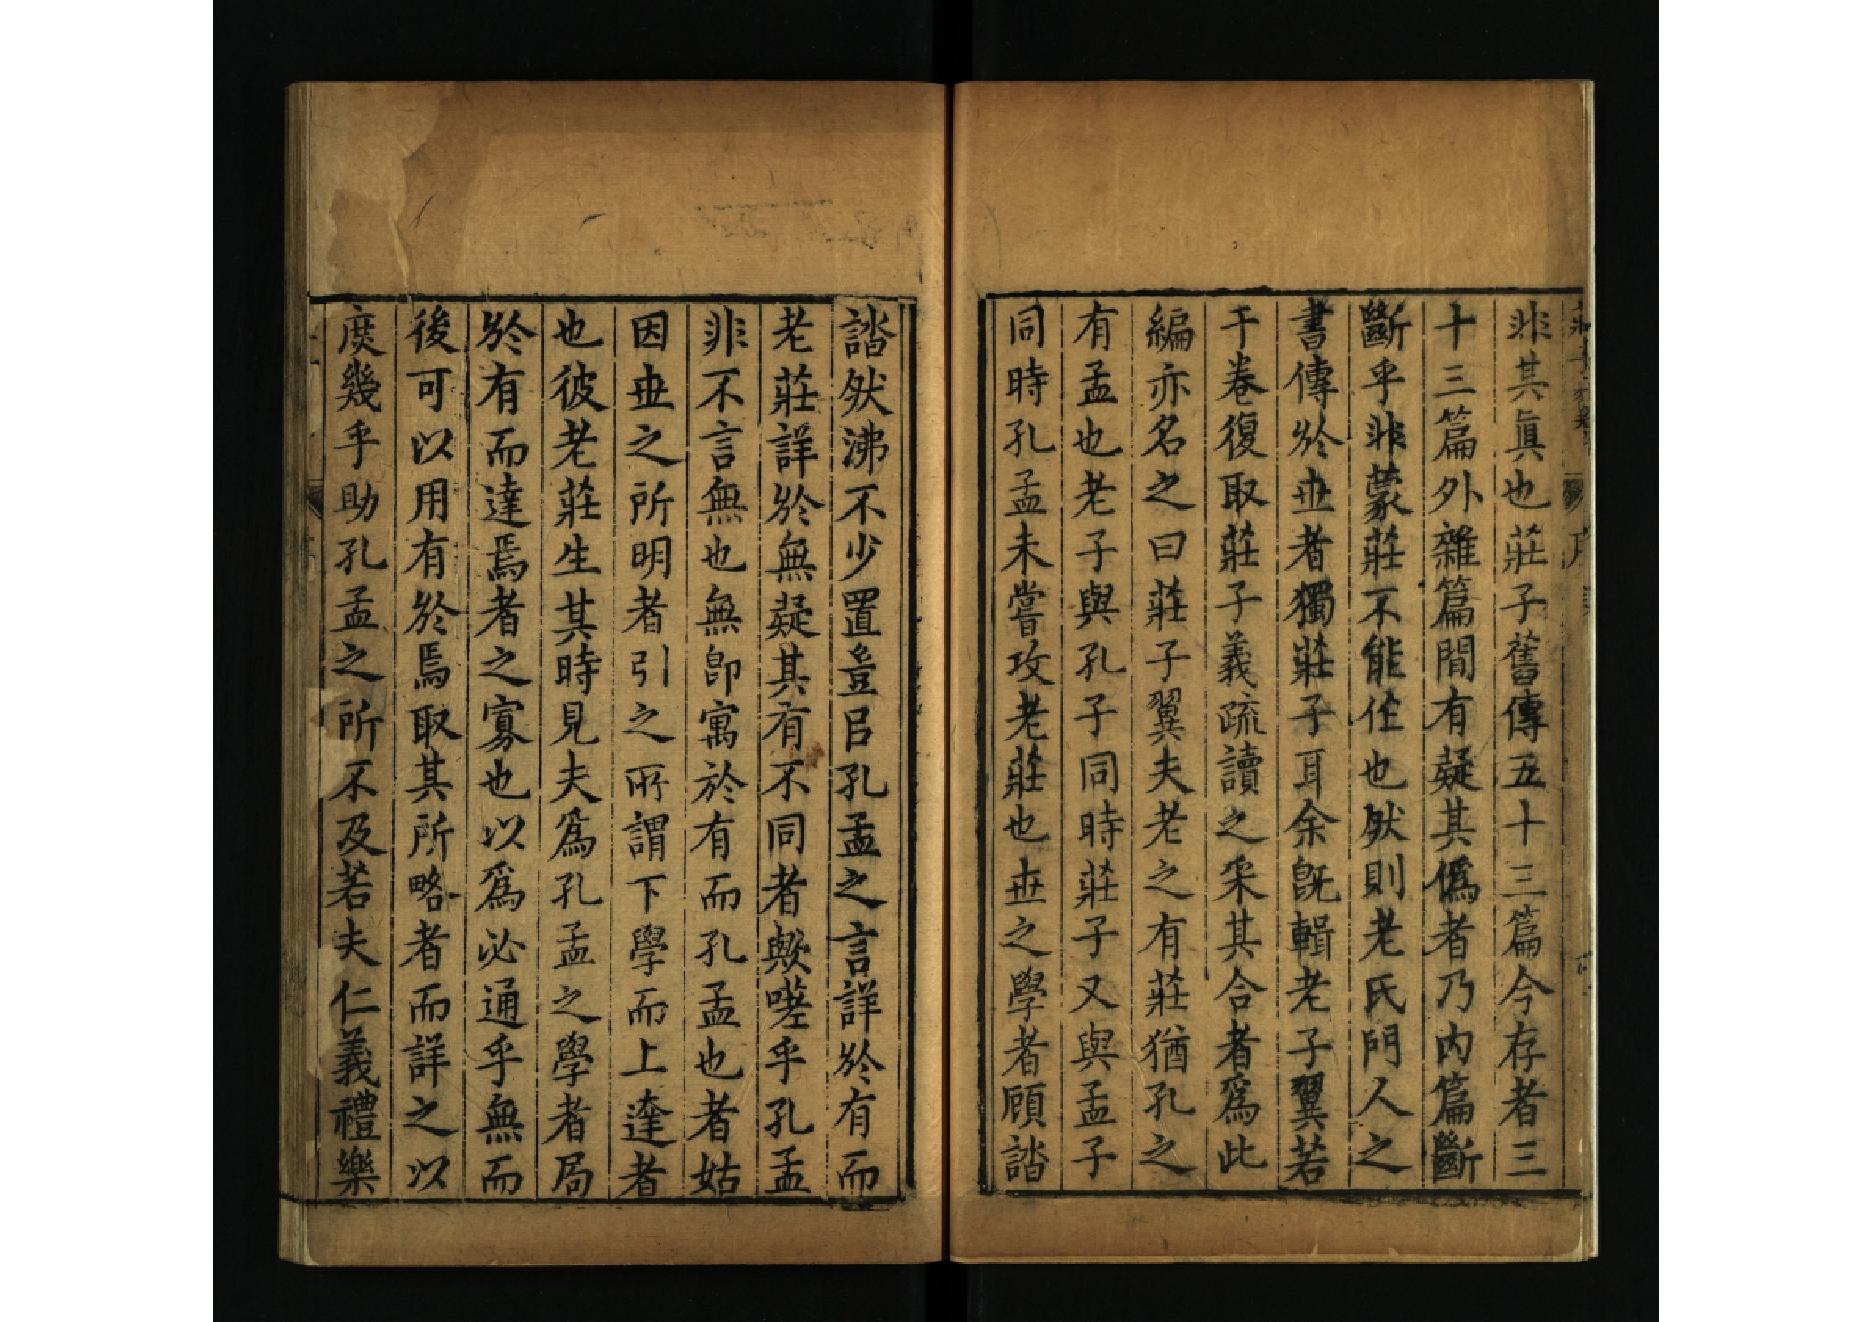 非其眞也莊子舊傳五十三篇今存者三
十三篇外雜篇間有疑其僞者乃内篇斷
斷乎非蒙莊不能作也然則老氏門人之
書傳於世者獨莊子耳余旣輯老子翼若
干卷復取莊子義疏讀之采其合者爲此
編亦名之曰莊子翼夫老之有莊猶孔之
有孟也老子與孔子同時莊子又與孟子
同時孔孟未嘗攻老莊也世之學者顧諮
諮然沸不少置豈㠯孔孟之言詳於有而
老莊詳於無疑其有不同者歟嗟乎孔孟
非不言無也無卽寓於有而孔孟也者姑
因世之所明者引之所謂下學而上達者
也彼老莊生其時見夫爲孔孟之學者局
於有而達焉者之寡也以爲必通乎無而
後可以用有於焉取其所略者而詳之以
庶幾乎助孔孟之所不及若夫仁義禮樂